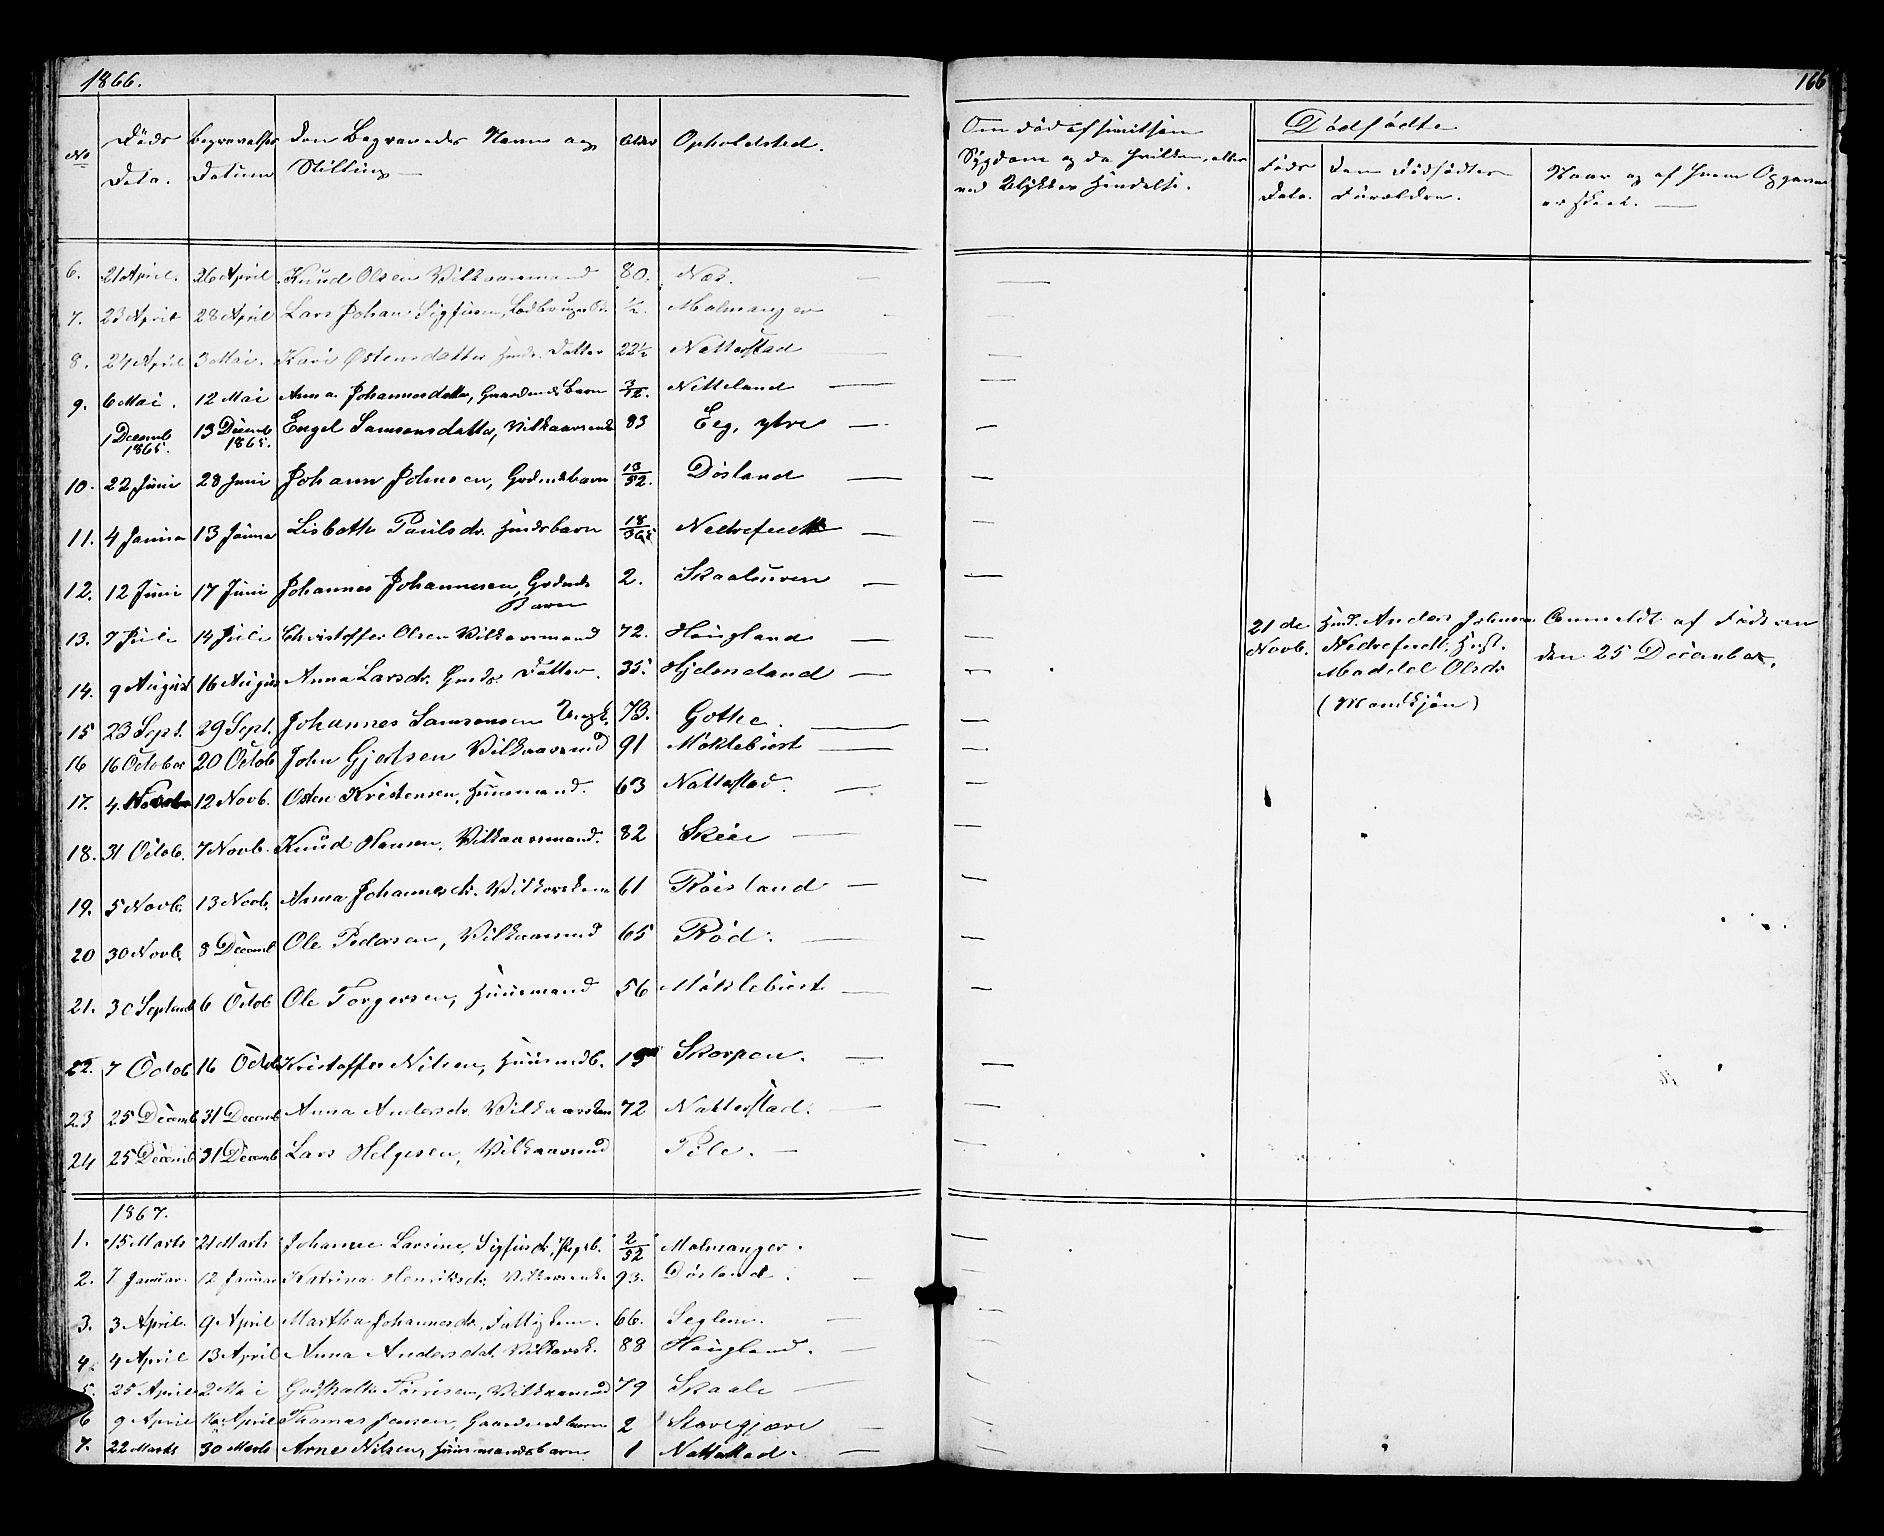 1866.
166
No
Døds Data.
Begravelses Datum
Den Begravedes Navn og Stilling
Alder
Opholdsted.
Om død af smitsom Sygdom og da hvilken, eller ved Ulykkes Hendelse.
Dødfødte
Føds Data.
Den Dødfødtes Forældre.
Naar og af hvem Opgaven er skeet.
6. 21 April. 26 April Knud Olsen Vilkaarsmand 80. Næs.
7. 23 April 28 April Lars Johan Sigfusen, ½. Malmanger
8. 24 April 3 Mai. Kari Østensdatter Huusm. Datter 22½ Netterstad
9. 6 Mai. 12 Mai Anna Johannesdatter, Gaardmds Barn 3/12. Netteland
1 Decemb 1865. 13 Decemb 1865. Engel Samsonsdatter, Vilkaarsenke 83 Eeg, ytre
10. 22 Juni 28 Juni Johann Johnsen, Grdmdsbarn 13/52. Døsland
11. 4 Januar 13 Januar Lisbeth Paulsdr. Huusbarn 18/365 Nedrefendt
12. 12 Juni 17 Juni Johannes Johannesen, Grdmds Barn 2. Skaaluren
13. 7 Juli 14 Juli Christoffer Olsen Vilkaarsmand 72. Haugland
14. 9 August 16 August Anna Larsdr. Grmds. Datter. 35. Hjelmeland
15 23 Sept. 29 Sept. Johannes Samsonsen Ungk. 73. Gothe.
16 16 October 20 Octob John Gjertsen Vilkaarsmd 91 Møklebust
17. 4. Novbr 12 Novb. Østen Kristensen, Huusmand. 63 Nattestad.
18. 31 Octob. 7 Novb. Knud Hansen, Vilkaarsmand. 82 Skeie
19. 5 Novb. 13 Novb. Anna Johannesdr. Vilkaarskone 61 Røisland
20 30 Novb. 8 Decemb Ole Pedersen, Vilkaarsmd 65 Rød.
21. 30 Septemb 6 Octob Ole Torgersen, Huusmand 56 Møklebust
22. 7 Octob 16 Octob Kristoffer Nilsen, Huusmdb. Skorpen.
23 25 Decemb 31 Decemb Anna Andersdr. Vilkaarskone 72 Natterstad.
24 25 Decemb 31 Decemb Lars Helgesen, Vilkaarsmd Pile.
21 de Novb. Huusm. Anders Johnsen Nedrefendt, Hust. Maddel Olsdr (Mandkjøn)
Anmeldt af Faderen den 25 December.
1867.
1. 15 Marts 21 Marts Johanne Larsine, Sigfusdr, Pigeb. 2/52 Malmanger.
2. 7 Januar. 12 Januar Katrina Henriksdr. Vilkaarsenke 93. Døsland.
3. 3 April. 9 April Martha Johannesdr. Fattiglem. 66. Seglem.
4. 4 April 13 April Anna Andersdat. Vilkaarsk. 88 Haugland.
5. 25 April 2 Mai Godskalk Tørrisen, Vilkaarsmd 79 Skaale
6 9 April 16 April Thomas Jensen, Gaardmdbarn 2 Storegjære
7. 22 Marts 30 Marts Arne Nilsen, Huusmandsbarn 1 Nattestad.